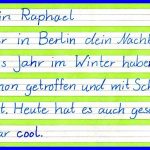 in Raphael
r in Berlin dein Nacht
s Jahr im Winter haben
on getroffen und mit Sch
t. Heute hat es auch gesc
ar cool.